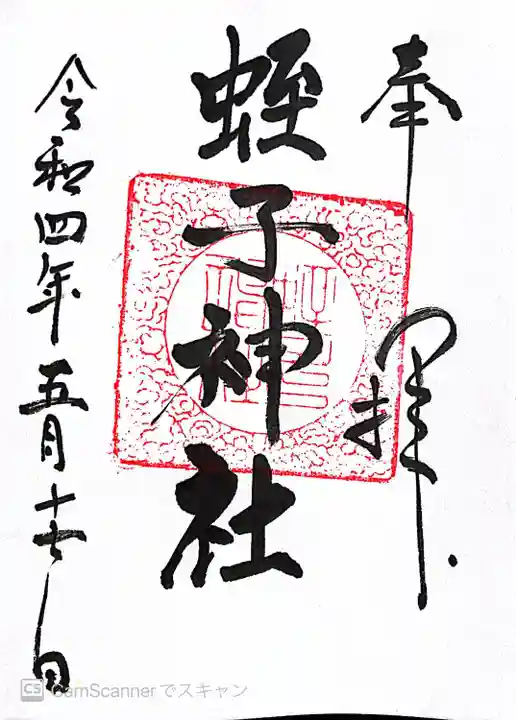 奉拝
蛭子神社
令和四年五月十七日
CS CamScannerでスキャン